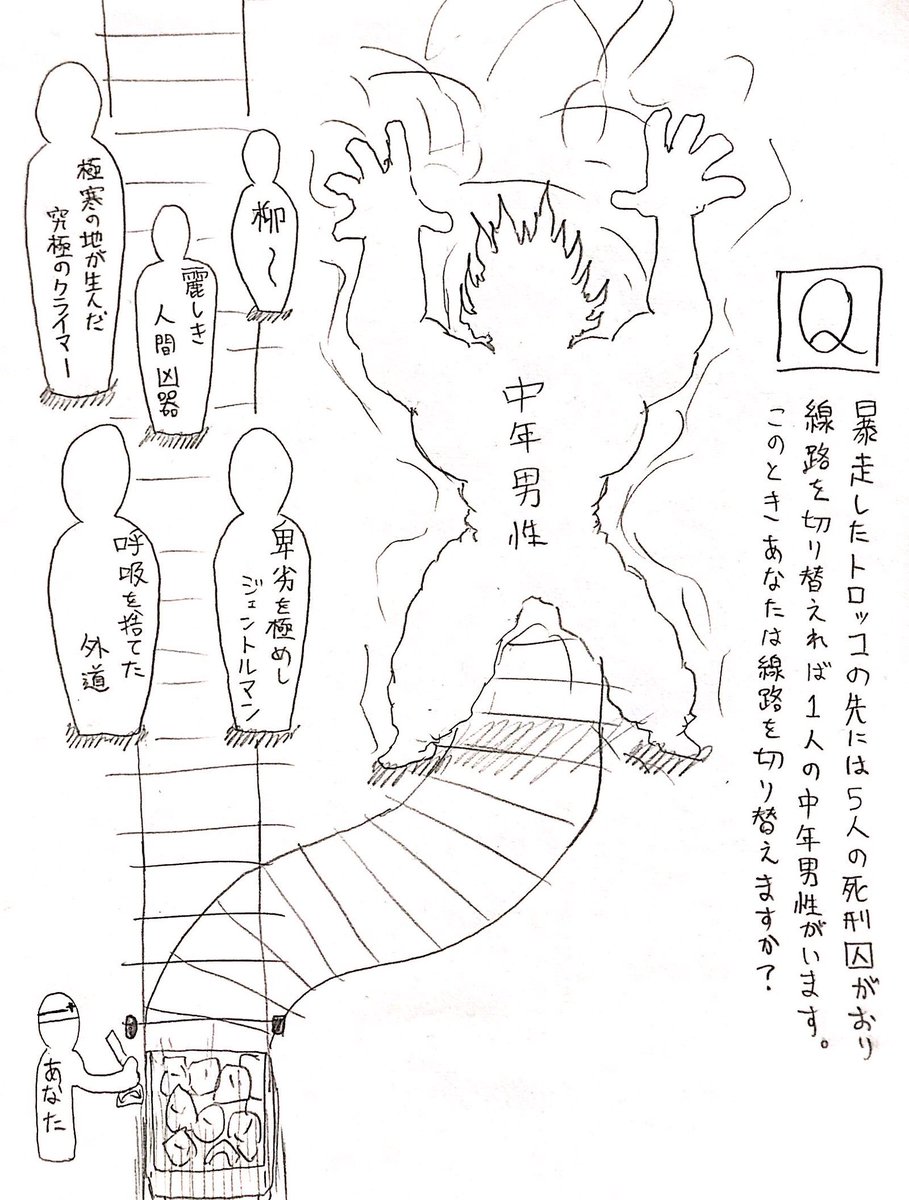 Q
暴走したトロッコの先には5人の死刑囚がおり
線路を切り替えれば1人の中年男性がいます。
このときあなたは線路を切り替えますか?
中年男性
柳〜
麗しき
人間凶器
極寒の地が生んだ
究極のクライマー
卑劣を極めし
ジェントルマン
呼吸を捨てた
外道
あなた